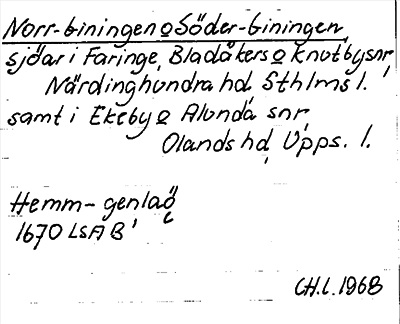 Norr-giningen o Söder-giningen,
sjöar i Faringe, Bladåkers o Knutby snr,
Närdinghundra hd, Sthlms l.
samt i Ekeby o Alunda snr,
Olands hd, Upps. l.
Hemm-genlaö
1670 LSA B 1
CH.l. 1968